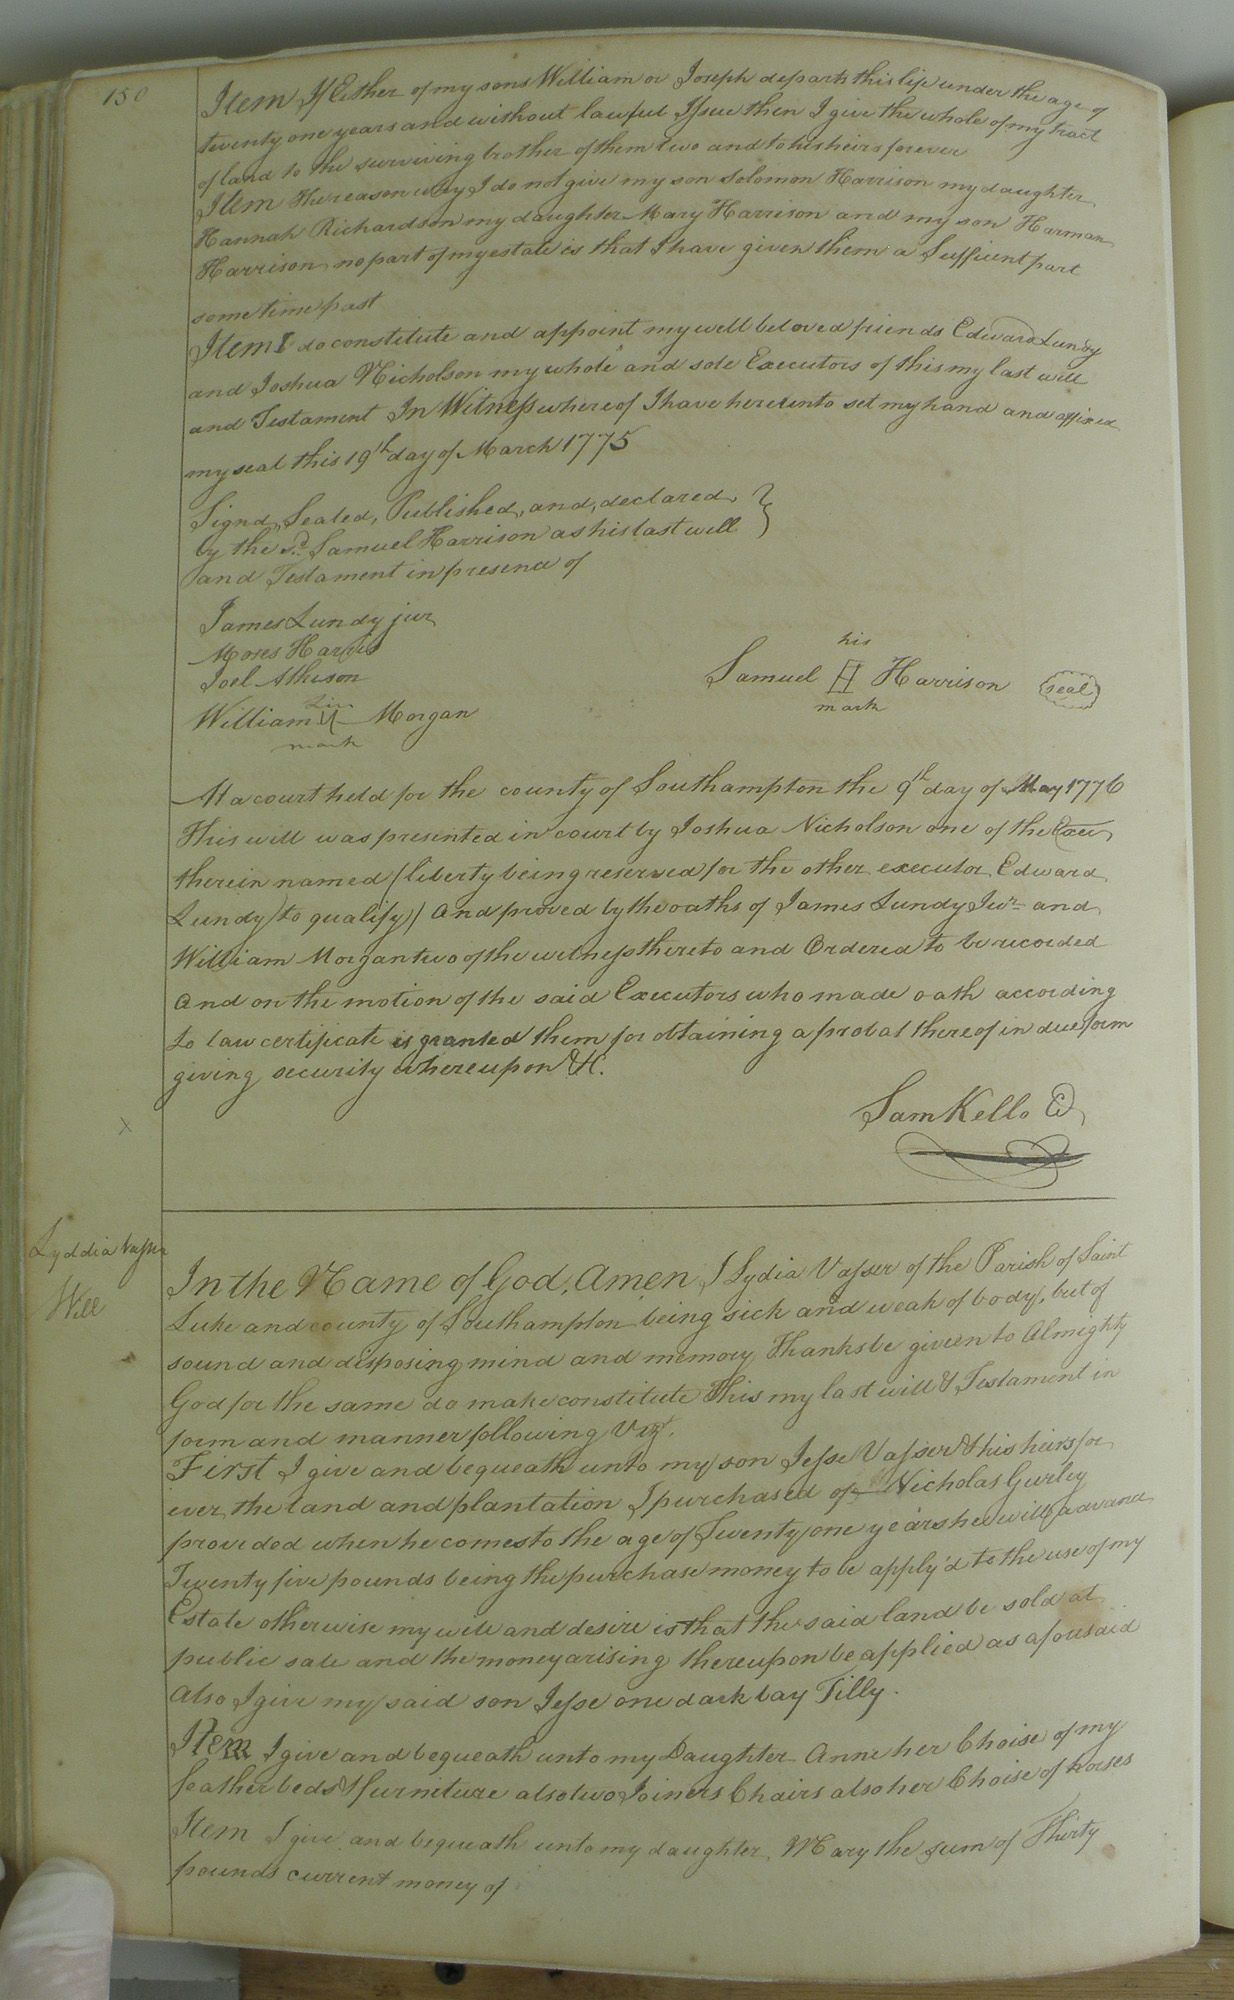 150
Item If Either of my sons William or Joseph departs this life under the age of
twenty one years and without lawful Issue then I give the whole of my tract
of land to the surviving brother of them two and to his heirs forever
Item The reason why I do not give my son Solomon Harrison my daughter
Hannah Richardson my daughter Mary Harrison and my son Harman
Harrison no part of my estate is that I have given them a Suffient part
some time past
Item I do constitute and appoint my well beloved friends Edward Lundy
and Joshua Nicholson my whole and sole Executors of this my last will
and Testament In Witness whereof I have hereunto set my hand and affixed
my seal this 19th day of March 1775
Signd, Sealed, Published, and, declared,
by the sd. Samuel Harrison as his last will
and Testament in presence of
James Lundy jur
Moses Harris
Joel Atkison
his
William Morgan
mark
his
Samuel H Harrison seal
mark
At a court held for the county of Southampton the 9th day of May 1776
This will was presented in court by Joshua Nicholson one of the Exeu
therein named (liberty being reserved for the other executor Edward
Lundy to qualify) And proved by the oaths of James Lundy Jur and
William Morgan two of the witness thereto and Ordered to be recorded
And on the motion of the said Executors who made oath according
to law certificate is granted them for obtaining a probat thereof in due form
giving security whereupon &c.
Sam Kello
x
Lyddia Vasser
Will
In the Name of God, Amen I Lydia Vasser of the Parish of Saint
Luke and county of Southampton being sick and weak of body, but of
sound and disposing mind and memory Thanks be given to Almighty
God for the same do make constitute This my last will & Testament in
form and manner following Vizt.
First I give and bequeath unto my son Jesse Vasser & his heirs for
ever, the land and plantation I purchased of Nicholas Gurley
provided when he comes to the age of Twenty one years he will advance
Twenty five pounds being the purchase money to be apply'd to the use of my
Estate otherwise my will and desire is that the said land be sold at
public sale and the money arising thereupon be applied as aforesaid
Also I give my said son Jesse one dark bay Filly.
Item I give and bequeath unto my Daughter Anne her Choise of my
feather beds & furniture also two Joiners Chairs also her Choise of horses
Item I give and bequeath unto my daughter Mary the sum of Thirty
pounds current money of